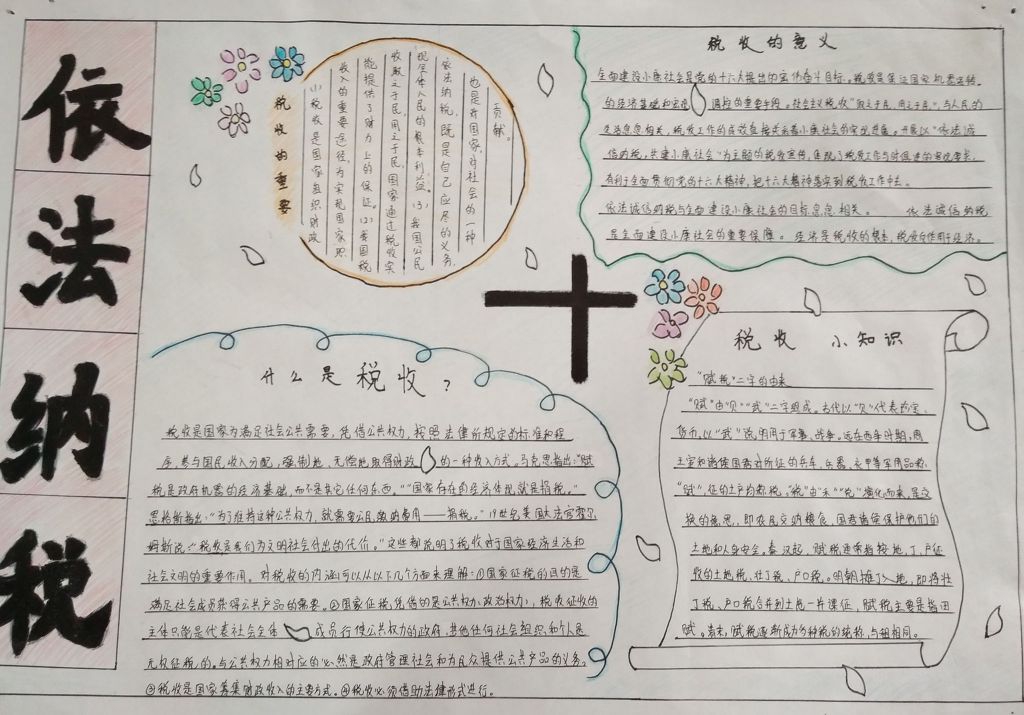 依法纳税
税收的重要
(1)税收是国家组织财政
收入的重要途径,为实现国家职
能提供了财力上的保证。(2)我国税
收取之于民,用之于民,国家通过税收实
现尽体人民的根本利益。(3)我国公民
依法纳税,既是自己应尽的义务,
也是对国家、对社会的一种
贡献。
税收的意义
全面建设小康社会是党的十六大提出的宏伟奋斗目标。税收是保证国家机器运转
的经济基础和宏观调控的重要手段。社会主义税收"取之于民,用之于民",与人民的
生活息息相关,税收工作的成效直接关系着小康社会的实现进程。开展以"依法诚
信纳税,共建小康社会"为主题的税收宣传,体现了税收工作与时俱进的客观要求,
有利于全面贯彻党的十六大精神,把十六大精神落实到税收工作中去。
依法诚信纳税与全面建设小康社会的目标息息相关。 依法诚信纳税
是全面建设小康社会的重要保障。经济是税收的根本,税收反作用于经济。
什么是税收?
税收是国家为满足社会公共需要,凭借公共权力,按照法律所规定的标准和程
序,参与国民收入分配,强制地、无偿地取得财政的一种收入方式。马克思指出:"赋
税是政府机器的经济基础,而不是其它任何东西。""国家存在的经济体现就是捐税。"
恩格斯指出:"为了维持这种公共权力,就需要公民缴纳费用——捐税。"19世纪美国大法官霍尔
姆斯说:"税收是我们为文明社会付出的代价。"这些都说明了税收对于国家经济生活和
社会文明的重要作用。对税收的内涵可以从以下几个方面来理解:①国家征税的目的是
满足社会成员获得公共产品的需要。②国家征税凭借的是公共权力(政治权力),税收征收的
主体只能是代表社会全体成员行使公共权力的政府,其他任何社会组织和个人是
无权征税的。与公共权力相对应的必然是政府管理社会和为民众提供公共产品的义务。
③税收是国家筹集财政收入的主要方式。④税收必须借助法律形式进行。
税收 小知识
"赋税"二字的由来
"赋"由"贝""武"二字组成。古代以"贝"代表为宝、
货币,以"武"说明用于军事、战争。远在西率时期,周
王室和诸侯国
"赋",征的土产均称税。"税"由"禾""兑"演化而来,是
换的意思,即农民交纳粮食,国君诸侯保护他们的
土地和人身安全。秦汉起,赋税逐渐指按地、丁、户征
收的土地税、壮丁税、户口税。明朝摊丁入地,即将壮
丁税、户口税合并到土地一并课征,赋税主要是指田
赋。清末,赋税逐渐成为多种税的统称,与租相同。